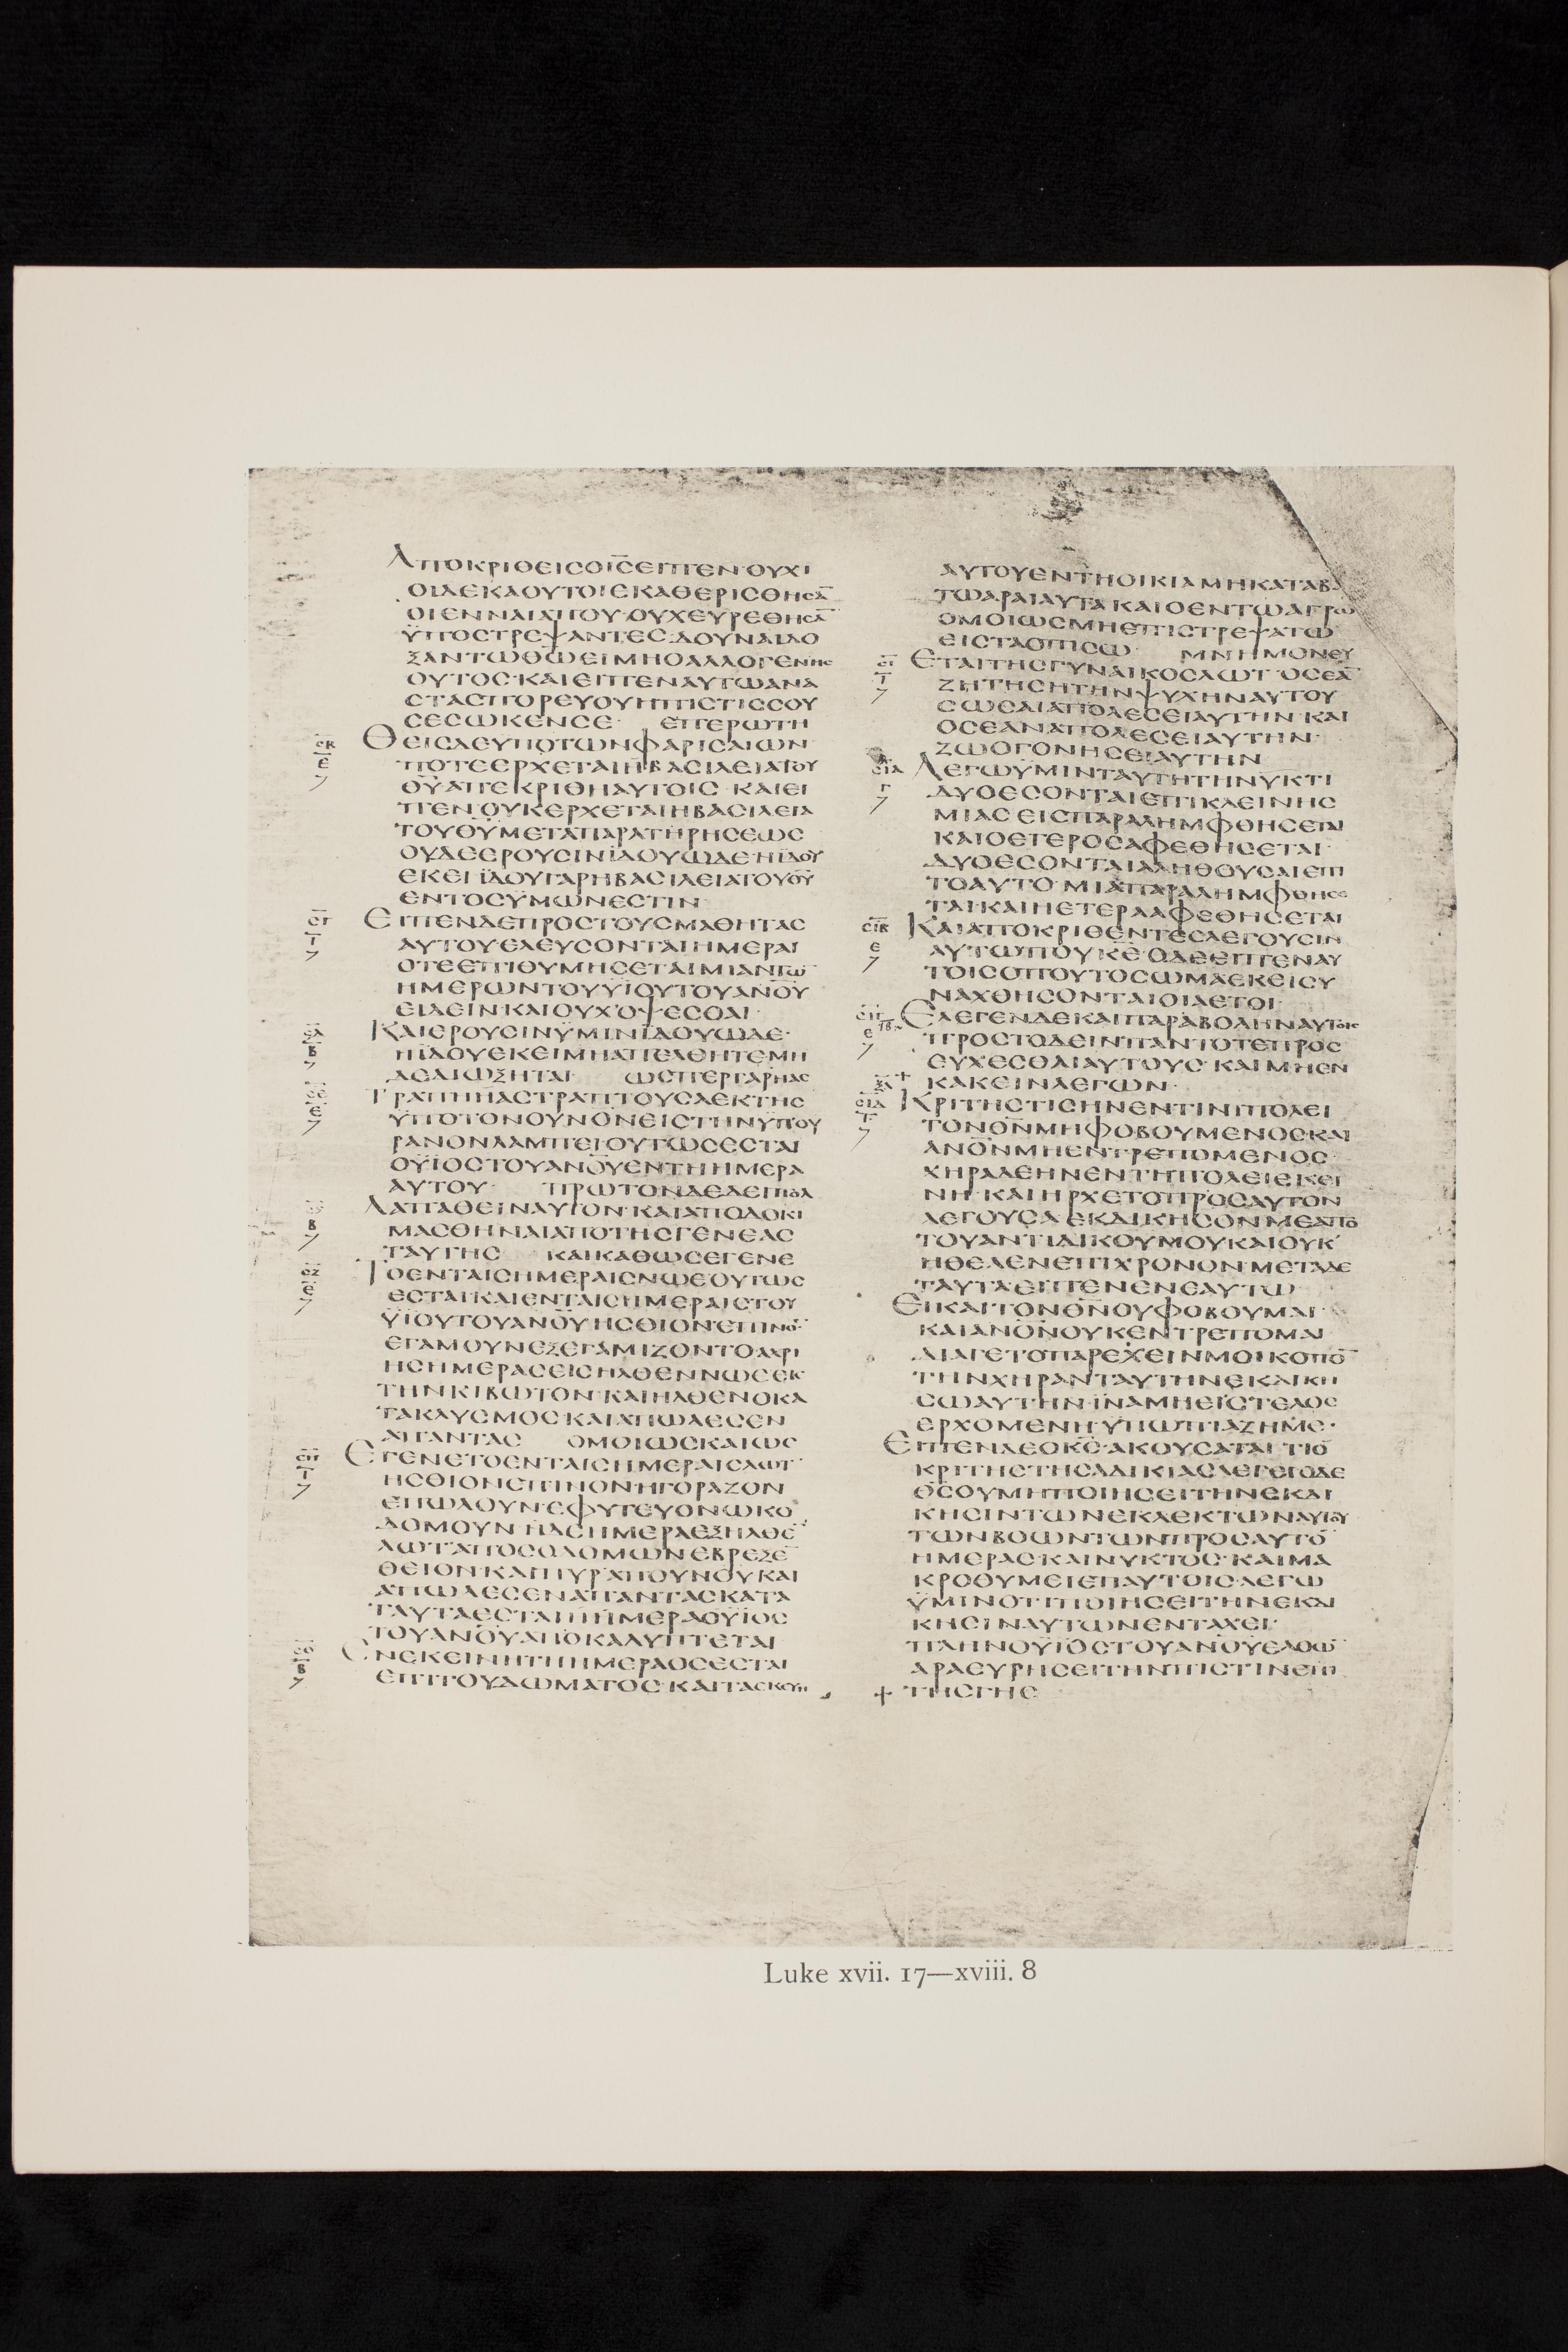 ΑΠΟΚΡΙΘΕΙСΟΙ̅С̅ΕΙΠΕΝ·ΟΥΧΙ
ΟΙΔΕΚΑΟΥΤΟΙΕΚΑΘΕΡΙСΘΗСΑ̅
ΟΙΕΝΝΑΙΑΙΠΟΥ·ΟΥΧΕΥΡΕΘΗСΑ̅
ΫΠΟСΤΡΕΨΑΝΤΕС·ΔΟΥΝΑΙΔΟ
ΞΑΝΤΩΘ̅Ω̅ΕΙΜΗΟΑΛΛΟΓΕΝΗС
ΟΥΤΟС·ΚΑΙΕΙΠΕΝΑΥΤΩΑΝΑ
СΤΑСΠΟΡΕΥΟΥΗΠΙСΤΙССΟΥ
СΕСΩΚΕΝСΕ· ΕΠΕΡΩΤΗ
С̅Κ̅ ΘΕΙСΔΕΥΠΟΤΩΝΦΑΡΙСΑΙΩΝ
Ε̅ ΠΟΤΕΕΡΧΕΤΑΙΗΒΑСΙΛΕΙΑΤΟΥ
Θ̅Υ̅ΑΠΕΚΡΙΘΗΑΥΤΟΙС·ΚΑΙΕΙ
ΠΕΝ·ΟΥΚΕΡΧΕΤΑΙΗΒΑСΙΛΕΙΑ
ΤΟΥΘ̅Υ̅ΜΕΤΑΠΑΡΑΤΗΡΗСΕΩС
ΟΥΔΕΕΡΟΥСΙΝΪΔΟΥΩΔΕ·ΗΪΔΟΥ
ΕΚΕΙ·ΪΔΟΥΓΑΡΗΒΑСΙΛΕΙΑΤΟΥΘ̅Υ̅
ΕΝΤΟСΫΜΩΝΕСΤΙΝ·
С̅Γ̅ ΕΙΠΕΝΔΕΠΡΟСΤΟΥСΜΑΘΗΤΑС
Ι̅ ΑΥΤΟΥΕΛΕΥСΟΝΤΑΙΗΜΕΡΑΙ
ΟΤΕΕΠΙΘΥΜΗСΕΤΑΙΜΙΑΝΤΩ̅
ΗΜΕΡΩΝΤΟΥΫΙΟΥΤΟΥΑ̅Ν̅Ο̅Υ̅
ΕΙΔΕΙΝ·ΚΑΙΟΥΧΌΨΕСΘΑΙ·
С̅Δ̅ ΚΑΙΕΡΟΥСΙΝΫΜΙΝΪΔΟΥΩΔΕ·
Β̅ ΗΪΔΟΥΕΚΕΙΜΗΑΠΕΛΘΗΤΕΜΗ
ΔΕΔΙΩΞΗΤΑΙ· ΩСΠΕΡΓΑΡΗΑС
С̅Ε̅ ΤΡΑΠΗΗΑСΤΡΑΠΤΟΥСΑΕΚΤΗС
Ε̅ ΥΠΟΤΟΝΟΥΝΟ̅Ν̅ΕΙСΤΗΝΫΠΟΥ
ΡΑΝΟΝΛΑΜΠΕΙ·ΟΥΤΩСΕСΤΑΙ
ΟΫΙΟСΤΟΥΑ̅Ν̅Ο̅Υ̅ΕΝΤΗΗΜΕΡΑ
ΑΥΤΟΥ· ΠΡΩΤΟΝΔΕΔΕΙΠΟΛ
ΛΑΠΑΘΕΙΝΑΥΤΟΝ·ΚΑΙΑΠΟΔΟΚΙ
Β̅ ΜΑСΘΗΝΑΙΑΠΟΤΗСΓΕΝΕΑС
ΤΑΥΤΗС ΚΑΙΚΑΘΩСΕΓΕΝΕ
С̅Ζ̅ ΤΟΕΝΤΑΙСΗΜΕΡΑΙСΝΩΕΟΥΤΩС
Ε̅ ΕСΤΑΙ·ΚΑΙΕΝΤΑΙСΗΜΕΡΑΙСΤΟΥ
ΫΙΟΥΤΟΥΑ̅Ν̅Ο̅Υ̅ΗСΘΙΟΝ·ΕΠΙΝΟ̅
ΕΓΑΜΟΥΝΕΞΕΓΑΜΙΖΟΝΤΟΑΧΡΙ
ΗСΗΜΕΡΑСΕΙСΗΛΘΕΝΝΩΕΕΙС
ΤΗΝΚΙΒΩΤΟΝ·ΚΑΙΗΛΘΕΝΟΚΑ
ΤΑΚΛΥСΜΟС·ΚΑΙΑΠΩΛΕСΕΝ
ΑΠΑΝΤΑС ΟΜΟΙΩСΚΑΙΩС
С̅Η̅ ΕΓΕΝΕΤΟΕΝΤΑΙСΗΜΕΡΑΙСΛΩΤ·
Ι̅ ΗСΘΙΟΝ·ΕΠΙΝΟΝ·ΗΓΟΡΑΖΟΝ
ΕΠΩΛΟΥΝ·ΕΦΥΤΕΥΟΝ·ΩΚΟ
ΔΟΜΟΥΝ·ΗΔΕΗΜΕΡΑΕΞΗΛΘΕ̅
ΛΩΤΑΠΟСΟΔΟΜΩΝΕΒΡΕΞΕ̅
ΘΕΙΟΝΚΑΙΠΥΡΑΠΟΥΝΟΥΚΑΙ
ΑΠΩΛΕСΕΝΑΠΑΝΤΑСΚΑΤΑ
ΤΑΥΤΑΕСΤΑΙΗΗΜΕΡΑΟΫΙΟС
ΤΟΥΑ̅Ν̅Ο̅Υ̅ΑΠΟΚΑΛΥΠΤΕΤΑΙ
С̅Θ̅ ΕΝΕΚΕΙΝΗΤΗΗΜΕΡΑΟСΕСΤΑΙ
Β̅ ΕΠΙΤΟΥΔΩΜΑΤΟС·ΚΑΙΤΑСΚΕΥΗ
ΑΥΤΟΥΕΝΤΗΟΙΚΙΑΜΗΚΑΤΑΒΑ
ΤΩΑΡΑΙΑΥΤΑ·ΚΑΙΟΕΝΤΩΑΓΡΩ
ΟΜΟΙΩСΜΗΕΠΙСΤΡΕΨΑΤΩ
ΕΙСΤΑΟΠΙСΩ· ΜΝΗΜΟΝΕΥ
С̅Ι̅ ΕΤΑΙΤΗСΓΥΝΑΙΚΟСΛΩΤ·ΟСΕΑ̅
Ι̅ ΖΗΤΗСΗΤΗΝΨΥΧΗΝΑΥΤΟΥ
СΩСΑΙΑΠΟΛΕСΕΙΑΥΤΗΝ·ΚΑΙ
ΟСΕΑΝΑΠΟΛΕСΕΙΑΥΤΗΝ·
ΖΩΟΓΟΝΗСΕΙΑΥΤΗΝ
С̅Ι̅Α̅ ΛΕΓΩΫΜΙΝΤΑΥΤΗΤΗΝΥΚΤΙ
Γ ΔΥΟΕСΟΝΤΑΙΕΠΙΚΛΕΙΝΗС
ΜΙΑС·ΕΙСΠΑΡΑΛΗΜΦΘΗСΕΤΑΙ
ΚΑΙΟΕΤΕΡΟСΑΦΕΘΗСΕΤΑΙ·
ΔΥΟΕСΟΝΤΑΙΑΛΗΘΟΥСΑΙΕΠΙ
ΤΟΑΥΤΟ·ΜΙΑΠΑΡΑΛΗΜΦΘΗСΕ
ΤΑΙ·ΚΑΙΗΕΤΕΡΑΑΦΕΘΗСΕΤΑΙ
С̅Ι̅Β̅ ΚΑΙΑΠΟΚΡΙΘΕΝΤΕСΛΕΓΟΥСΙΝ
Ε ΑΥΤΩΠΟΥΚ̅Ε̅·ΟΔΕΕΙΠΕΝΑΥ
ΤΟΙСΟΠΟΥΤΟСΩΜΑΕΚΕΙСΥ
ΝΑΧΘΗСΟΝΤΑΙΟΙΑΕΤΟΙ·
С̅Ι̅Γ̅ ΕΛΕΓΕΝΔΕΚΑΙΠΑΡΑΒΟΛΗΝΑΥΤΟΙС
Ε ΠΡΟСΤΟΔΕΙΝΠΑΝΤΟΤΕΠΡΟС
ΕΥΧΕСΘΑΙΑΥΤΟΥС·ΚΑΙΜΗΕΝ
ΚΑΚΕΙΝΛΕΓΩΝ·
С̅Ι̅Δ̅ ΚΡΙΤΗСΤΙСΗΝΕΝΤΙΝΙΠΟΛΕΙ
Ι̅ ΤΟΝΘ̅Ν̅ΜΗΦΟΒΟΥΜΕΝΟСΚΑΙ
Α̅Ν̅Ο̅Ν̅ΜΗΕΝΤΡΕΠΟΜΕΝΟС·
ΧΗΡΑΔΕΗΝΕΝΤΗΠΟΛΕΙΕΚΕΙ
ΝΗ·ΚΑΙΗΡΧΕΤΟΠΡΟСΑΥΤΟΝ
ΛΕΓΟΥСΑ·ΕΚΔΙΚΗСΟΝΜΕΑΠΟ
ΤΟΥΑΝΤΙΔΙΚΟΥΜΟΥΚΑΙΟΥΚ
ΗΘΕΛΕΝΕΠΙΧΡΟΝΟΝ·ΜΕΤΑΔΕ
ΤΑΥΤΑΕΙΠΕΝΕΝΕΑΥΤΩ
ΕΙΚΑΙΤΟΝΘ̅Ν̅ΟΥΦΟΒΟΥΜΑΙ·
ΚΑΙΑ̅Ν̅Ο̅Ν̅ΟΥΚΕΝΤΡΕΠΟΜΑΙ
ΔΙΑΓΕΤΟΠΑΡΕΧΕΙΝΜΟΙΚΟΠΟ̅
ΤΗΝΧΗΡΑΝΤΑΥΤΗΝΕΚΔΙΚΗ
СΩΑΥΤΗΝ·ΪΝΑΜΗΕΙСΤΕΛΟС
ΕΡΧΟΜΕΝΗΫΠΩΠΙΑΖΗΜΕ·
ΕΙΠΕΝΔΕΟΚ̅С̅·ΑΚΟΥСΑΤΑΙ·ΤΙΟ
ΚΡΙΤΗСΤΗСΑΔΙΚΙΑСΛΕΓΕΙΟΔΕ
Θ̅С̅ΟΥΜΗΠΟΙΗСΕΙΤΗΝΕΚΔΙ
ΚΗСΙΝΤΩΝΕΚΛΕΚΤΩΝΑΥΤΟΥ
ΤΩΝΒΟΩΝΤΩΝΠΡΟСΑΥΤΟ̅
ΗΜΕΡΑС·ΚΑΙΝΥΚΤΟС·ΚΑΙΜΑ
ΚΡΟΘΥΜΕΙΕΠΑΥΤΟΙС·ΛΕΓΩ
ΫΜΙΝΟΤΙΠΟΙΗСΕΙΤΗΝΕΚΔΙ
ΚΗСΙΝΑΥΤΩΝΕΝΤΑΧΕΙ·
ΠΛΗΝΟΫΙΟСΤΟΥΑ̅Ν̅Ο̅Υ̅ΕΛΘΩ̅
ΑΡΑΕΥΡΗСΕΙΤΗΝΠΙСΤΙΝΕΠΙ
ΤΗСΓΗС
Luke xvii. 17—xviii. 8